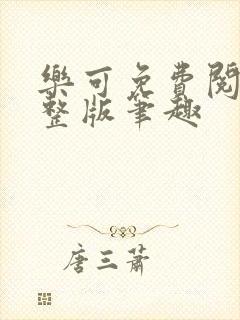 樂可免費閱
整版筆趣
唐三蕭